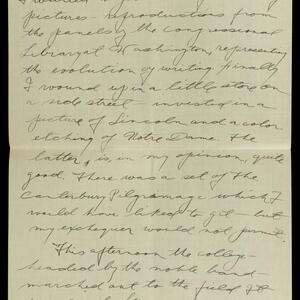 pictures - reproductions from
the panels of the Congressional
Library at Washington, representing
the evolution of writing. Finally
I wound up in a little store on
a side street - invested in a
picture of Lincoln and a color
etching of Notre Dame. The
latter, is, in my opinion, quite
good. There was a set of the
Canterbury Pilgrimage which I
would have liked to get - but
my exchequer would not permit.
This afternoon the college -
headed by the noble band -
marched out to the field. It